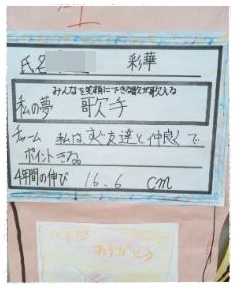 氏名 彩華
みんなを笑顔にできる歌が歌える
私の夢 歌手
チャーム 私はすぐ友達と仲良くで
ポイント きる。
4年間の伸び 16.6 cm
ありがとう